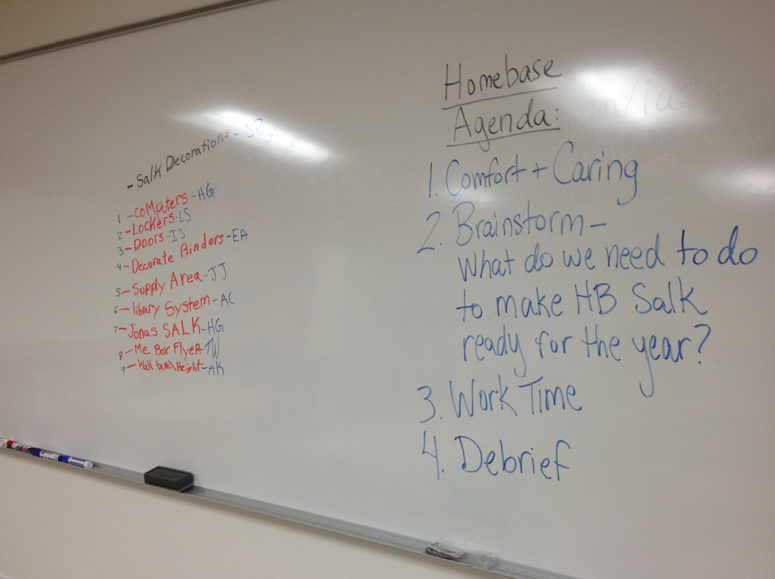 - Salk Decorations -
1 - Computers - HG
2 - Lockers - LS
3 - Doors - IS
4 - Decorate Binders - EA
5 - Supply Area - JJ
6 - library System - AC
7 - Jonas SALK - HG
8 - Me Box Flyer - TW
9 - Wall - AK
Homebase
Agenda:
1. Comfort + Caring
2. Brainstorm -
What do we need to do
to make HB Salk
ready for the year?
3. Work Time
4. Debrief